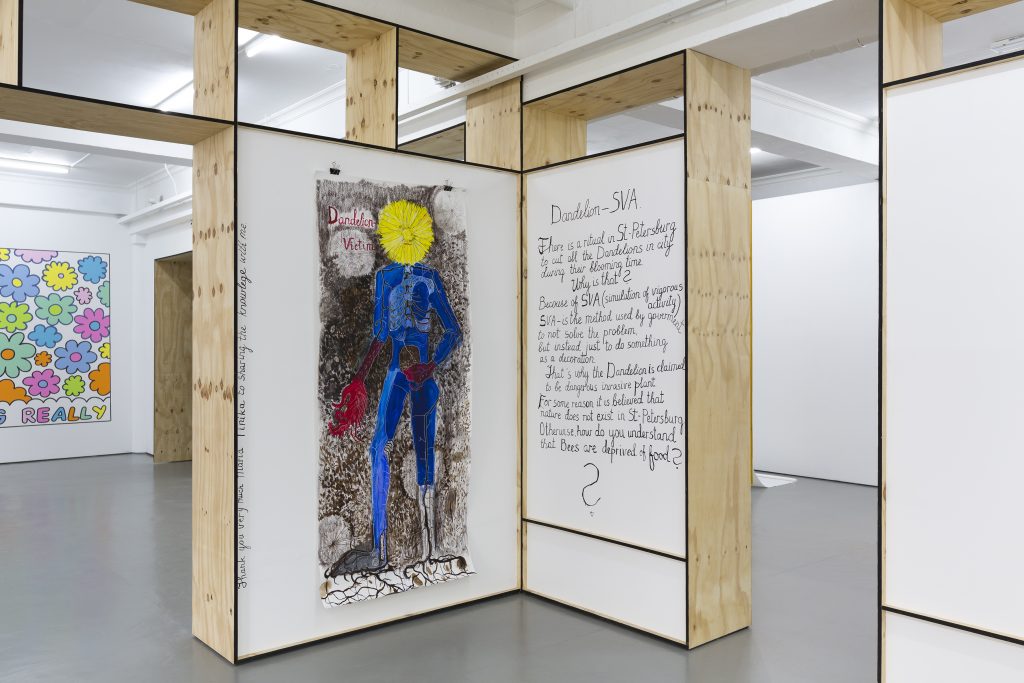 REALLY
Thank you very much Maria to sharing the knowlege with me
Dandelion
Victim
Dandelion-SVA.
There is a ritual in St-Petersburg
to cut all the Dandelions in city
during their blooming time.
Why is that?
Because of SVA (simulation of vigorous
activity)
SVA-is the method used by goverment
to not solve the problem,
but instead just to do something
as a decoration.
That's why the Dandelion is claimed
to be dangerous invasive plant.
For some reason it is believed that
nature does not exist in St-Petersburg
Otherwise, how do you understand
that Bees are deprived of food?
?